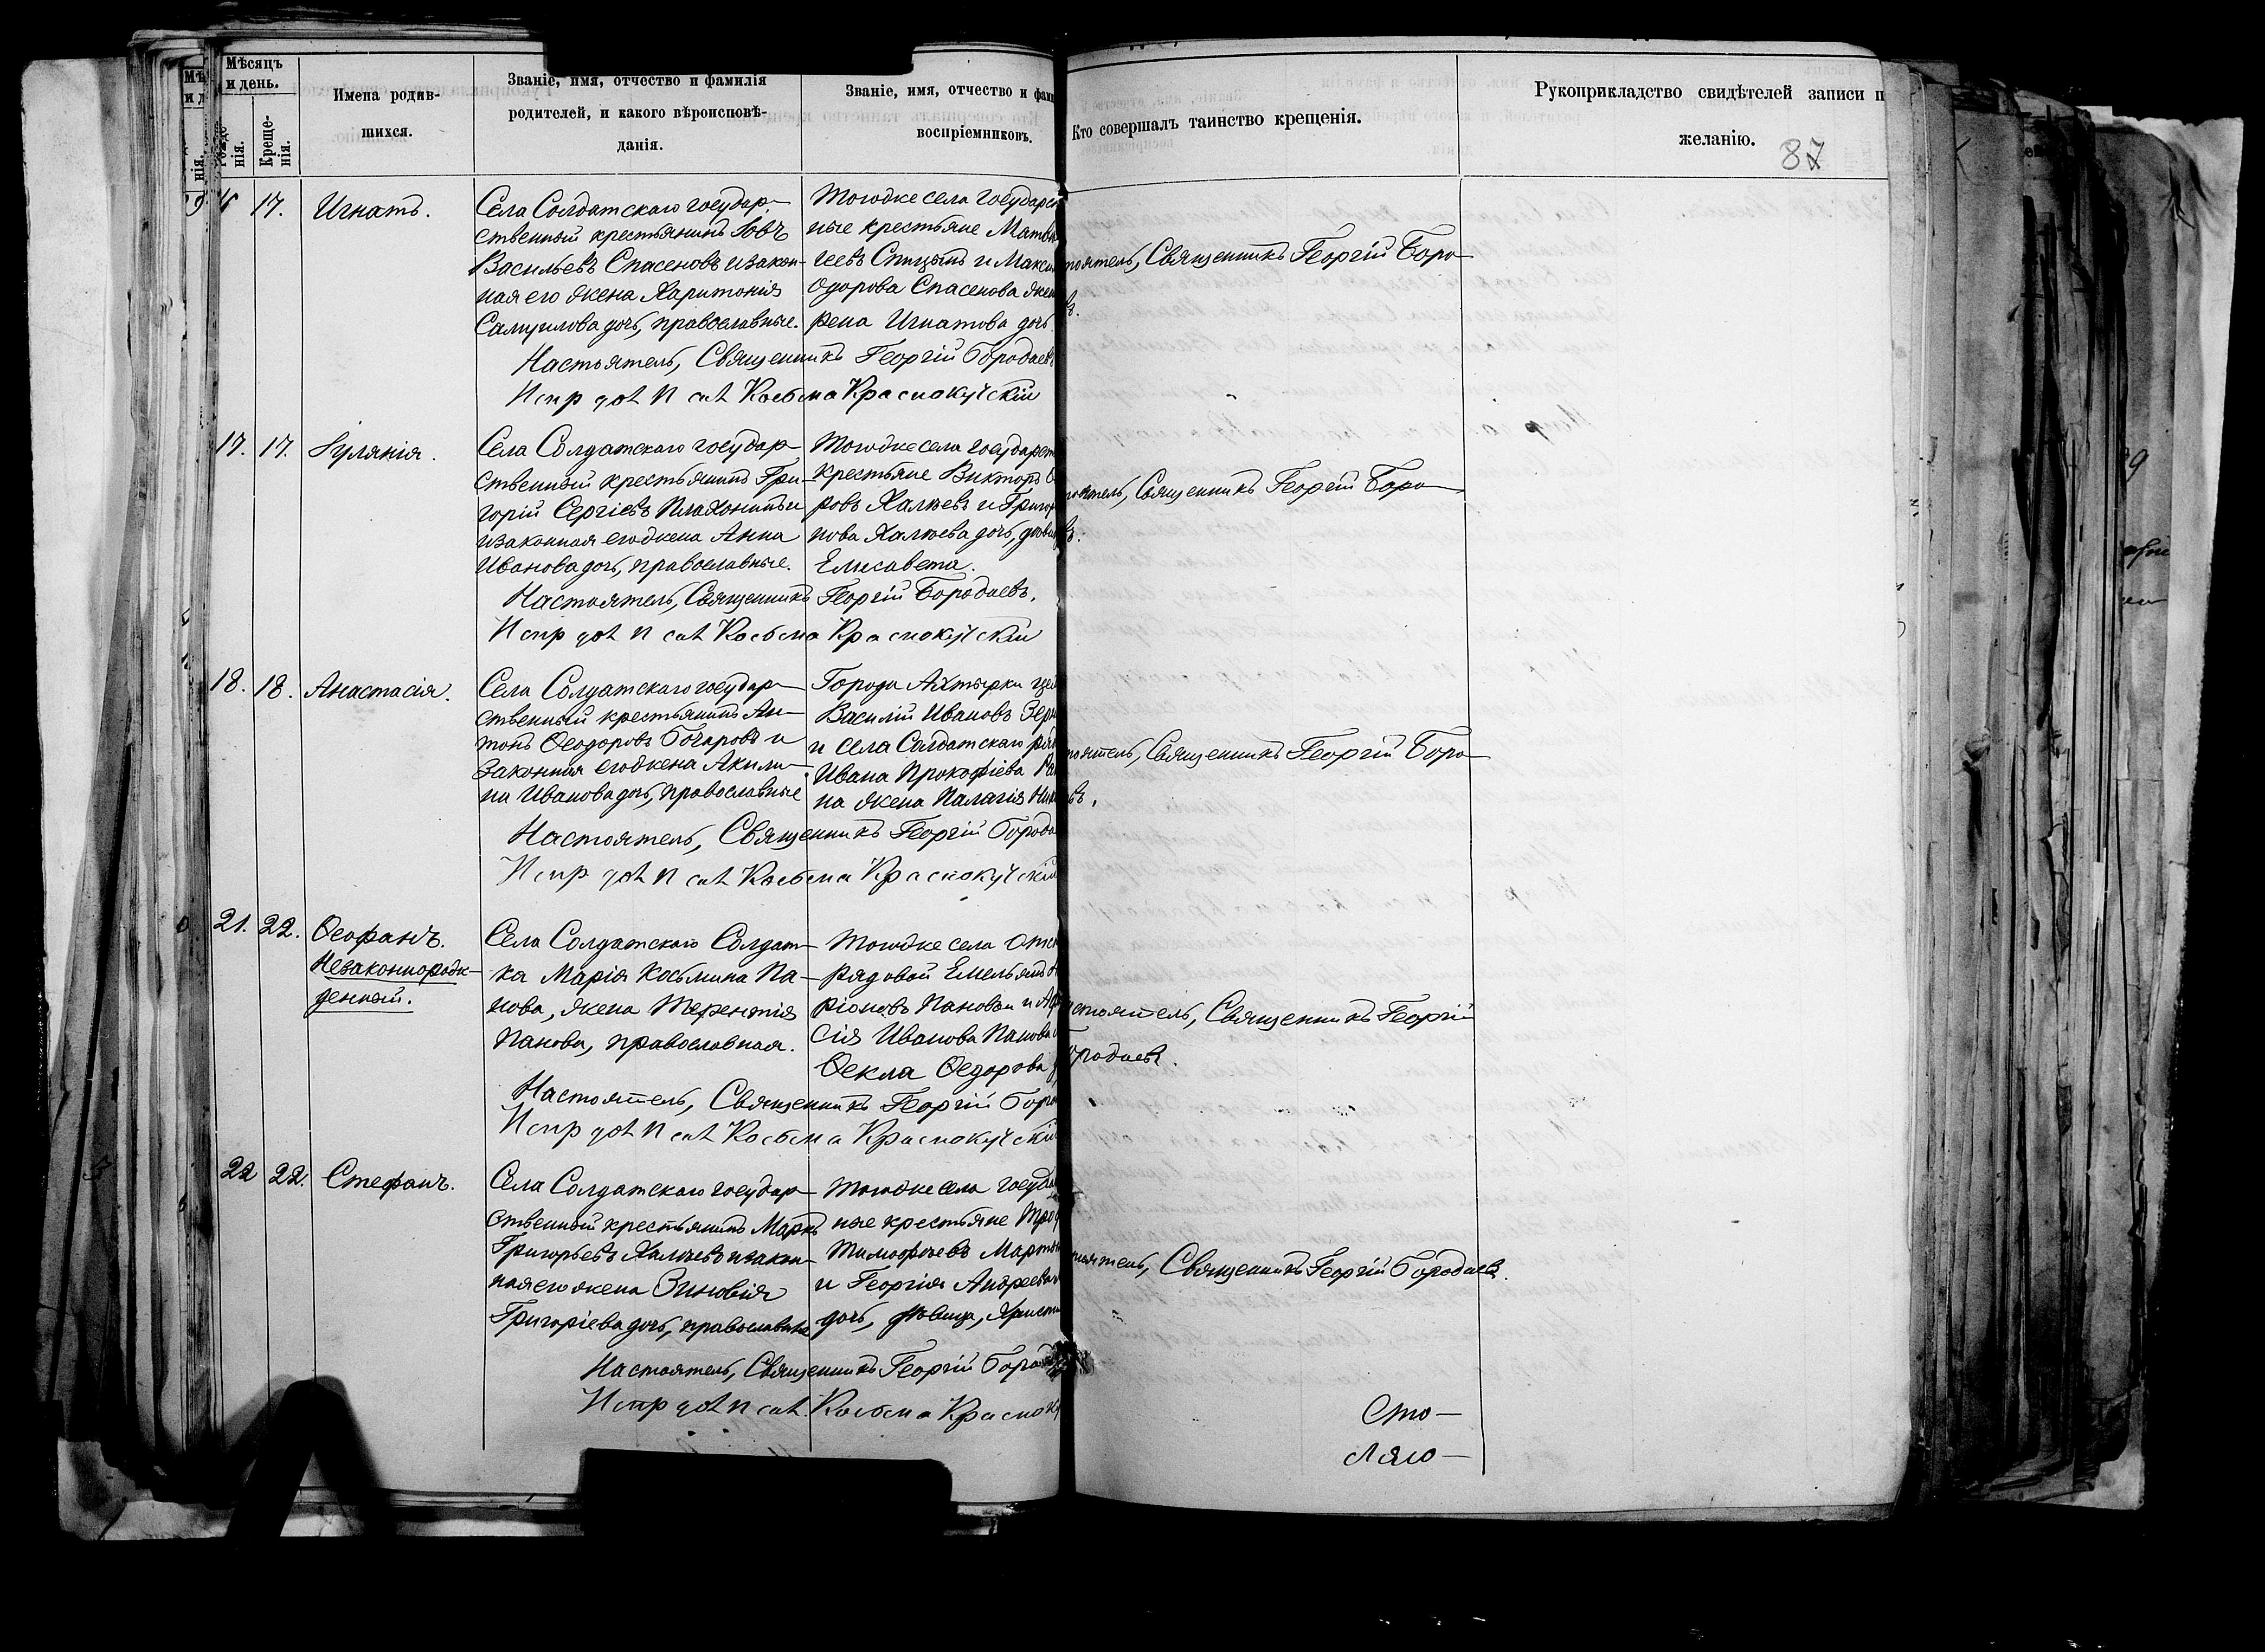 Мѣсяцъ
и день.
Рожде-
нія.
Креще-
нія.
Имена родив-
шихся.
Званіе, имя, отчество и фамилія
родителей, и какого вѣроисповѣ-
данія.
Званіе, имя, отчество и фами
воспріемниковъ.
Кто совершалъ таинство крещенія.
Рукоприкладство свидѣтелей записи п
желанію.
87
17. Игнатъ.
Села Солдатскаго государ-
ственный крестьянинъ Іовъ
Васильевъ Спасеновъ и закон-
ная его жена Харитонія
Самуилова дочь, православные.
Тогоже села государст
ные крестьяне Матвѣ
Спицынъ и Макси
Одорова Спасенова жен
рена Игнатова дочь.
тоятель, Священникъ Георгій Боро-
въ.
Настоятель, Священникъ Георгій Бородаевъ
Косьма Краснокутскій
17. 17. Іулянія.
Села Солдатскаго государ-
ственный крестьянинъ Гри-
горій Сергіевъ Плахотинъ и
законная его жена Анна
Иванова дочь, православные.
Тогоже села государст
крестьяне Викторъ
ровъ Халяевъ и Григор
нова Халяева дочь, дѣвиц
Елисавета.
тоятель, Священникъ Георгій Боро-
въ.
Настоятель, Священникъ Георгій Бородаевъ.
Косьма Краснокутскій
18. 18. Анастасія.
Села Солдатскаго государ-
ственный крестьянинъ Ан-
тонъ Ѳеодоровъ Бочаровъ и
законная его жена Акили-
на Иванова дочь, православные
Города Ахтырки
Василій Ивановъ Зер
и села Солдатскаго ряд
Ивана Прокофіева
на жена Палагія
тоятель, Священникъ Георгій Боро-
въ.
Настоятель, Священникъ Георгій Борода
Косьма Краснокутскій
21. 22. Ѳеофанъ.
Незаконнорож-
денный.
Села Солдатскаго Солдат-
ка Марія Косьмина Па-
нова, жена Терентія
Панова, православная.
Тогоже села Отст
рядовой Емельянъ
ріоновъ Пановъ и
сія Иванова Панова
Ѳекла Ѳедорова
стоятель, Священникъ Георгій
ородаевъ.
Настоятель, Священникъ Георгій Боро
Косьма Краснокутскій
22 22. Стефанъ.
Села Солдатскаго государ-
ственный крестьянинъ Маркъ
Григорьевъ Халяевъ и закон-
ная его жена Зиновія
Григоріева дочь, православные
Тогоже села госуда
ные крестьяне Троф
Тимофѣевъ Марты
и Георгія Андреева
дочь, дѣвица, Христи
тоятель, Священникъ Георгій Бородаевъ.
Настоятель, Священникъ Георгій Борода
Косьма Красноку
Сто-
ляю-